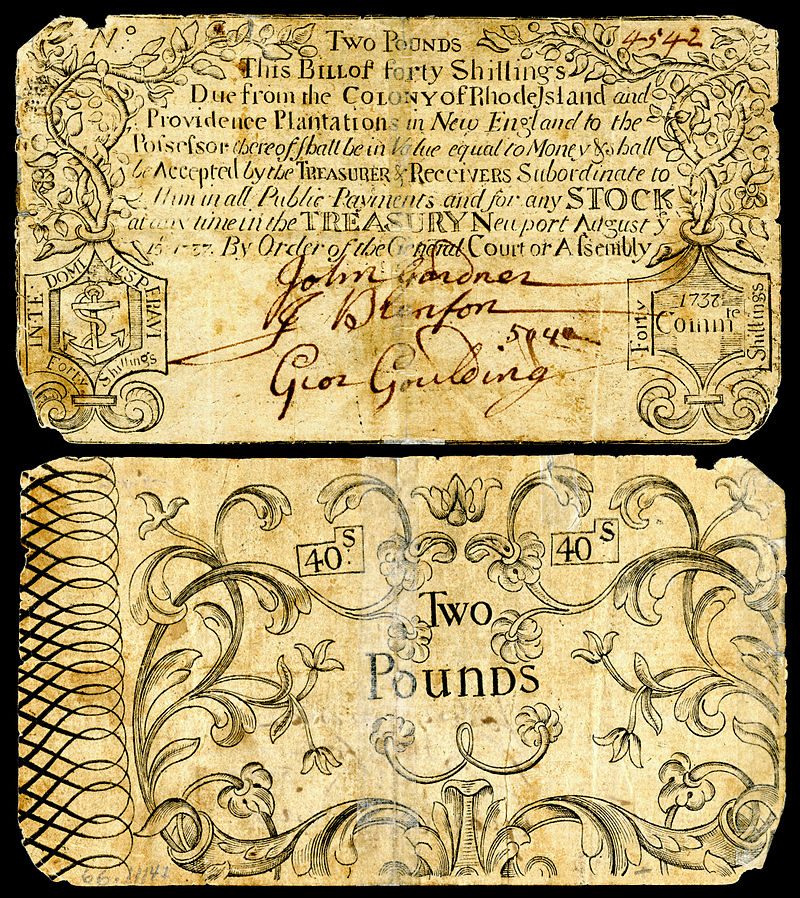 No
4542
Two Pounds
This Bill of forty Shillings
Due from the Colony of Rhode Island and
Providence Plantations in New England to the
Possessor thereof shall be in Value equal to Money & shall
be Accepted by the Treasurer & Receivers Subordinate to
Him in all Public Payments and for any STOCK
at any time in the TREASURY Newport August ye
By Order of the General Court or Assembly
John Gardner
Geor Goulding
IN TE DOMINE SPERAVI
Forty Shillings
Forty
1737
Commte
Shillings
40S
40S
Two
Pounds